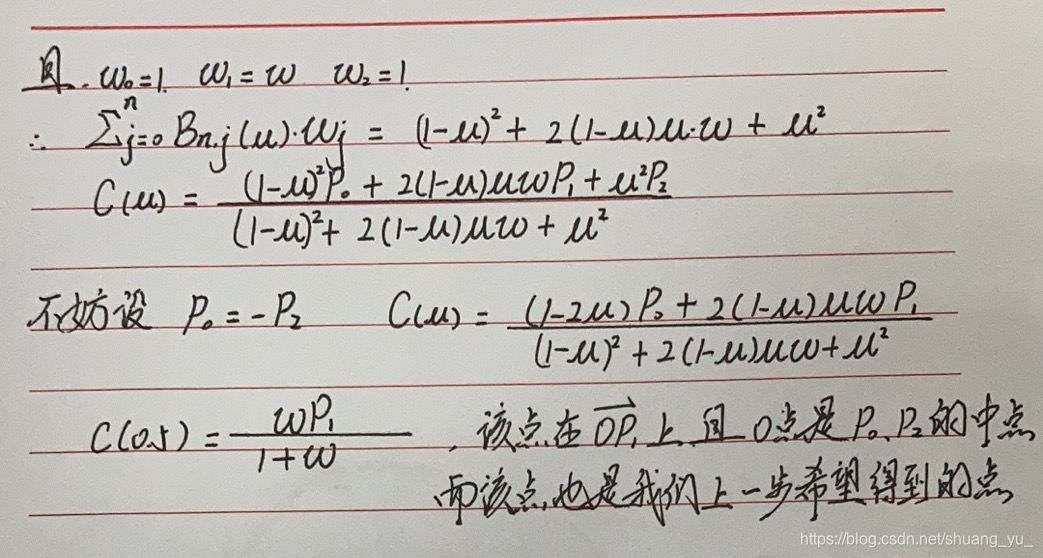 且. w₀=1. w₁=w w₂=1.
∴ Σⁿⱼ₌₀ Bn,j(u)·wj = (1-u)² + 2(1-u)u·w + u²
C(u) = ((1-u)²P₀ + 2(1-u)uwP₁ + u²P₂) / ((1-u)² + 2(1-u)uw + u²)
不妨设 P₀ = -P₂ C(u) = ((1-2u)P₀ + 2(1-u)uwP₁) / ((1-u)² + 2(1-u)uw + u²)
C(0.5) = wP₁ / (1+w) , 该点在 OP₁ 上 且 O点是 P₀、P₂ 的中点
而该点也是我们上一步希望得到的点
https://blog.csdn.net/shuang_yu_